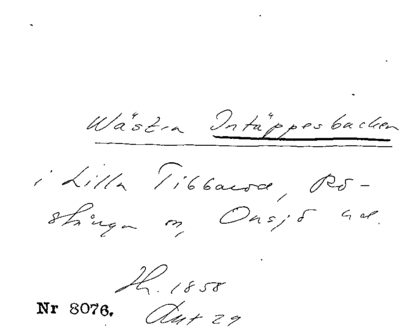 Wästra Intäppesbacken
i Lilla Tibbarod, Rö-
stånga sn, Onsjö hd.
Hr. 1858
Nr 8076. Akt 29